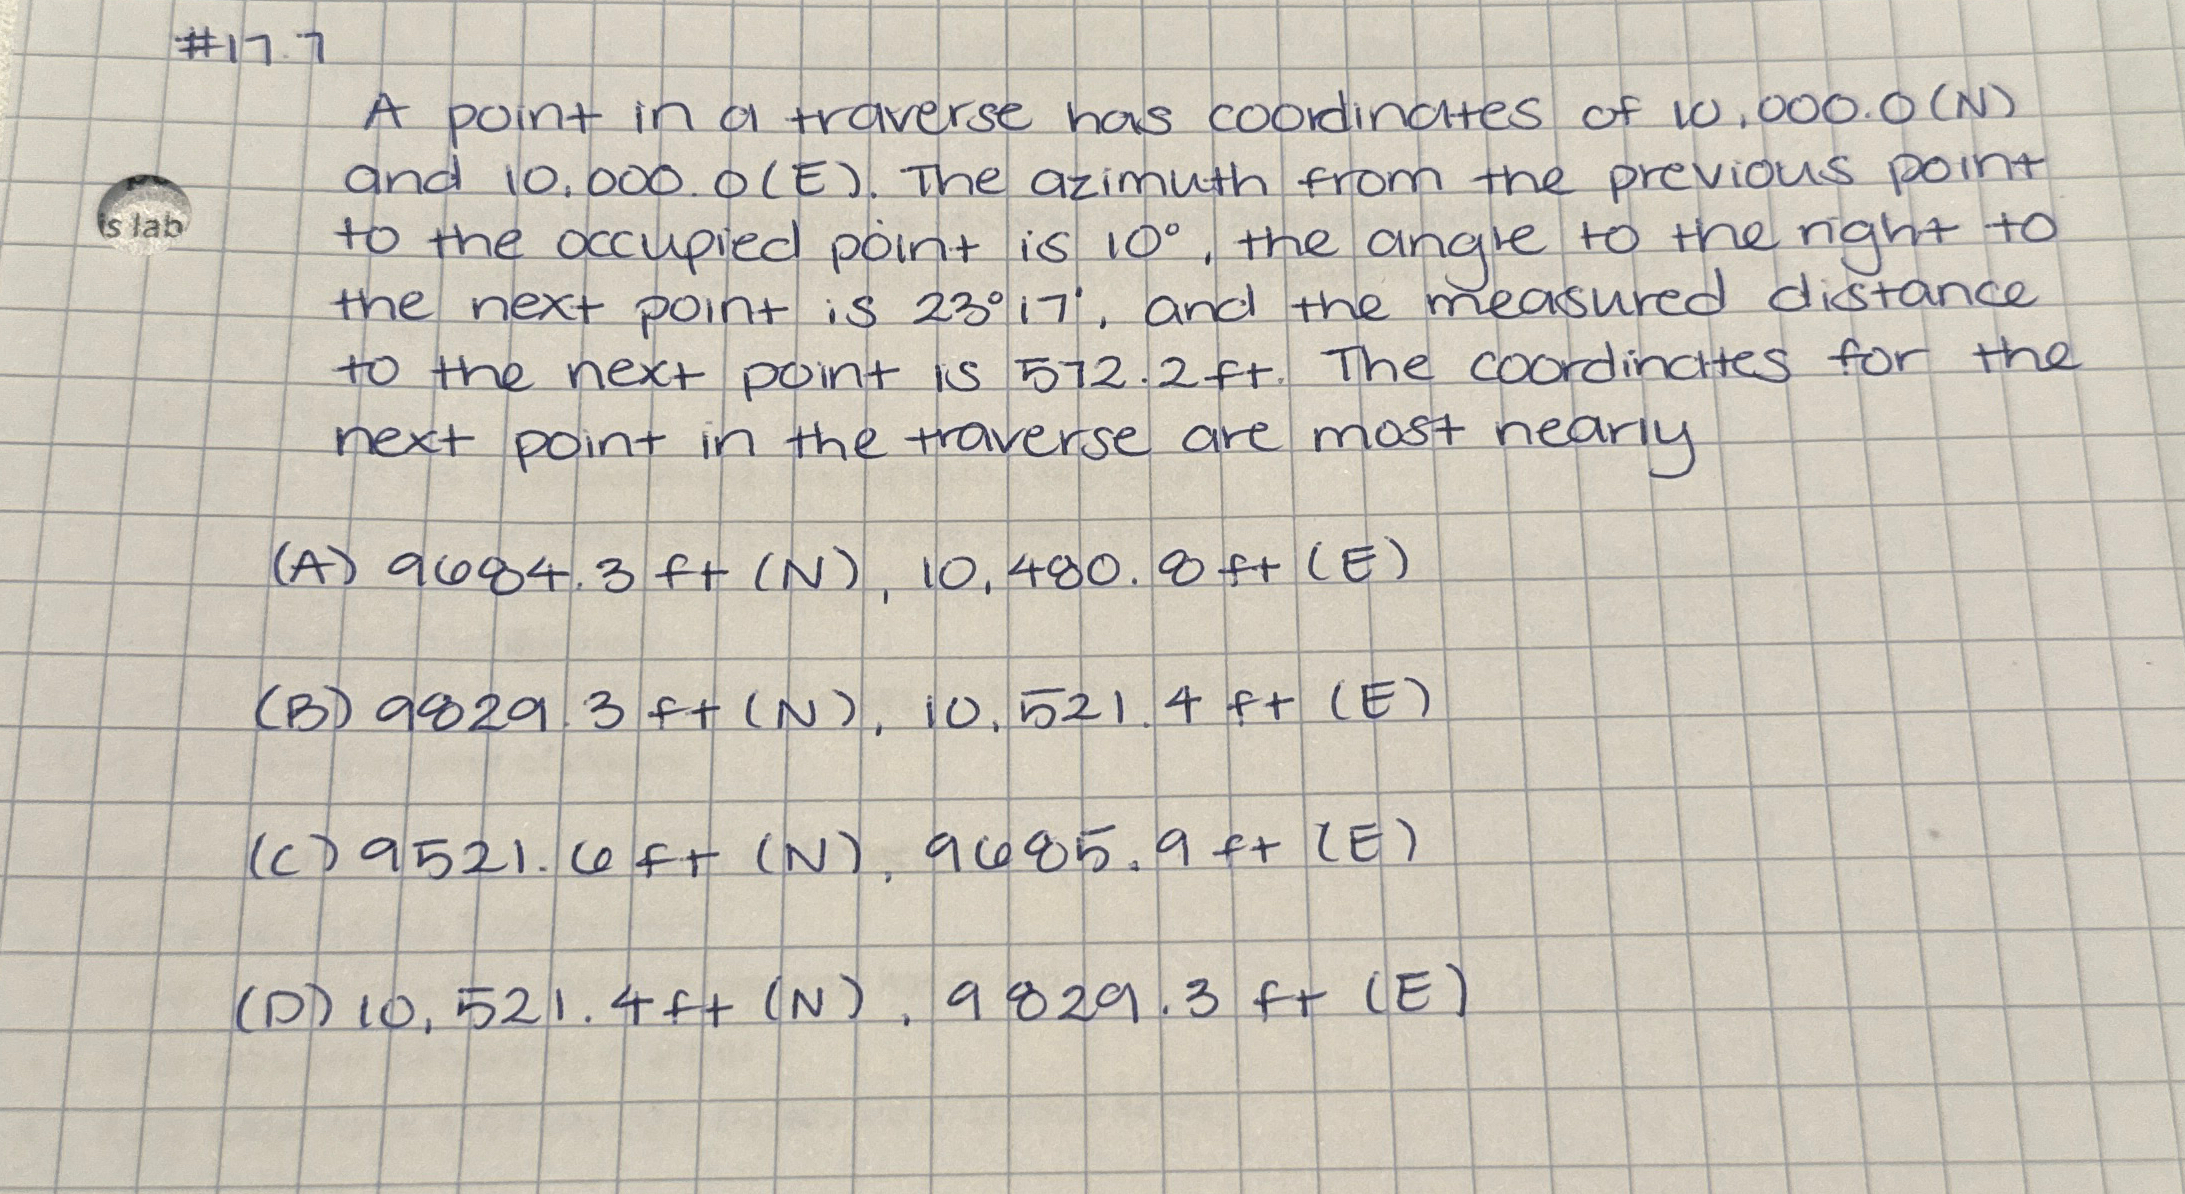 #17.7
A point in a traverse has coordinates of 10,000.0(N)
and 10,000.0(E). The azimuth from the previous point
to the occupied point is 10°, the angle to the right to
the next point is 23°17', and the measured distance
to the next point is 572.2 ft. The coordinates for the
next point in the traverse are most nearly
is lab
(A) 9684.3 ft (N), 10,480.8 ft (E)
(B) 9829.3 ft (N), 10,521.4 ft (E)
(C) 9521.6 ft (N), 9685.9 ft (E)
(D) 10,521.4 ft (N), 9829.3 ft (E)